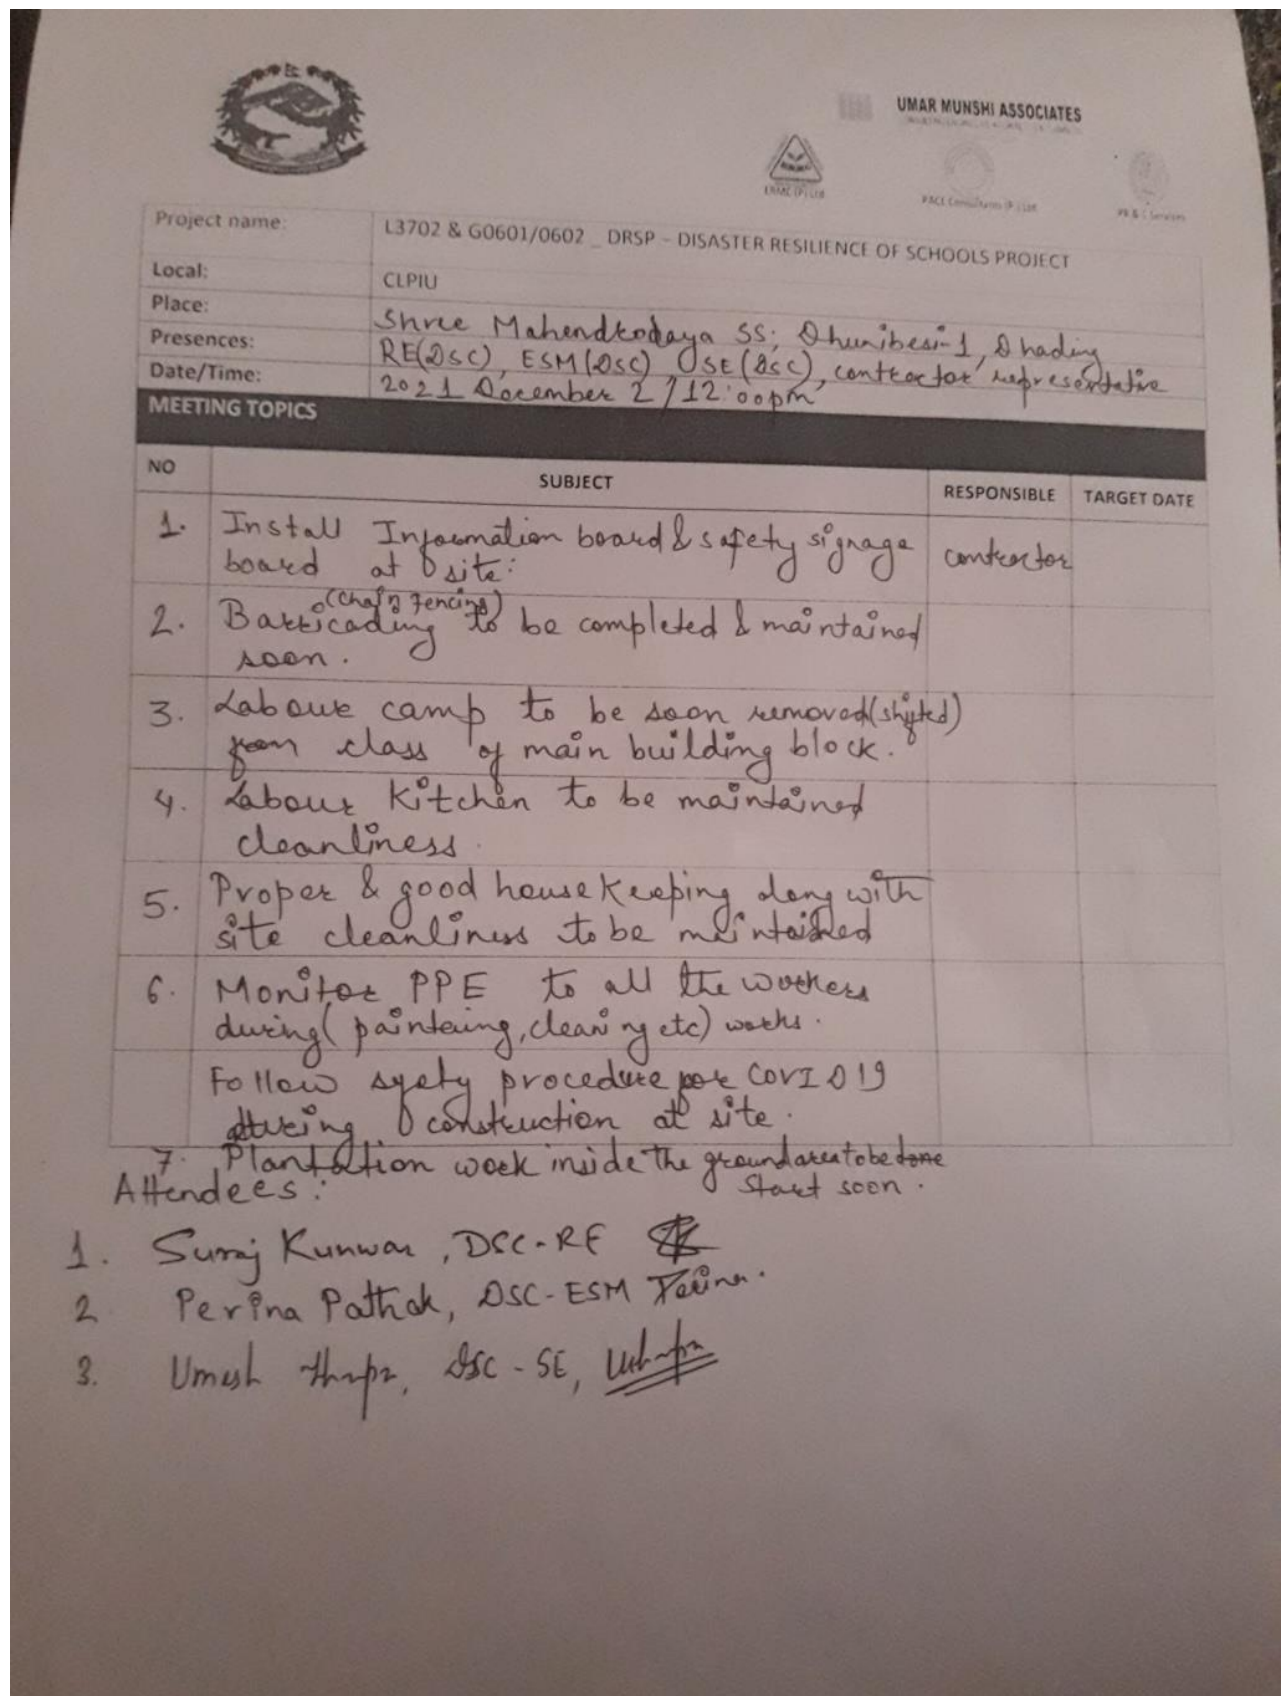 UMAR MUNSHI ASSOCIATES
PACE Consultants (P.) Ltd
Project name: L3702 & G0601/0602 _ DRSP – DISASTER RESILIENCE OF SCHOOLS PROJECT
Local: CLPIU
Place: Shree Mahendrodaya SS; Dhunibesi-1, Dhading
Presences: RE(DSC), ESM(DSC), SE(DSC), contractor representative
Date/Time: 2021 December 2 / 12:00pm
MEETING TOPICS
NO SUBJECT RESPONSIBLE TARGET DATE
1. Install Information board & safety signage contractor
board at site.
(chain fencing)
2. Barricading to be completed & maintained
soon.
3. Labour camp to be soon removed (shifted)
from class of main building block.
4. Labour Kitchen to be maintained
cleanliness.
5. Proper & good house keeping along with
site cleanliness to be maintained
6. Monitor PPE to all the workers
during (paintering, cleaning etc) works.
Follow safety procedure for COVID 19
during construction at site.
7. Plantation work inside the ground area to be done
start soon.
Attendees:
1. Suraj Kunwar, DSC-RE
2 Perina Pathak, DSC-ESM Perina.
3. Umesh Thapa, DSC-SE,